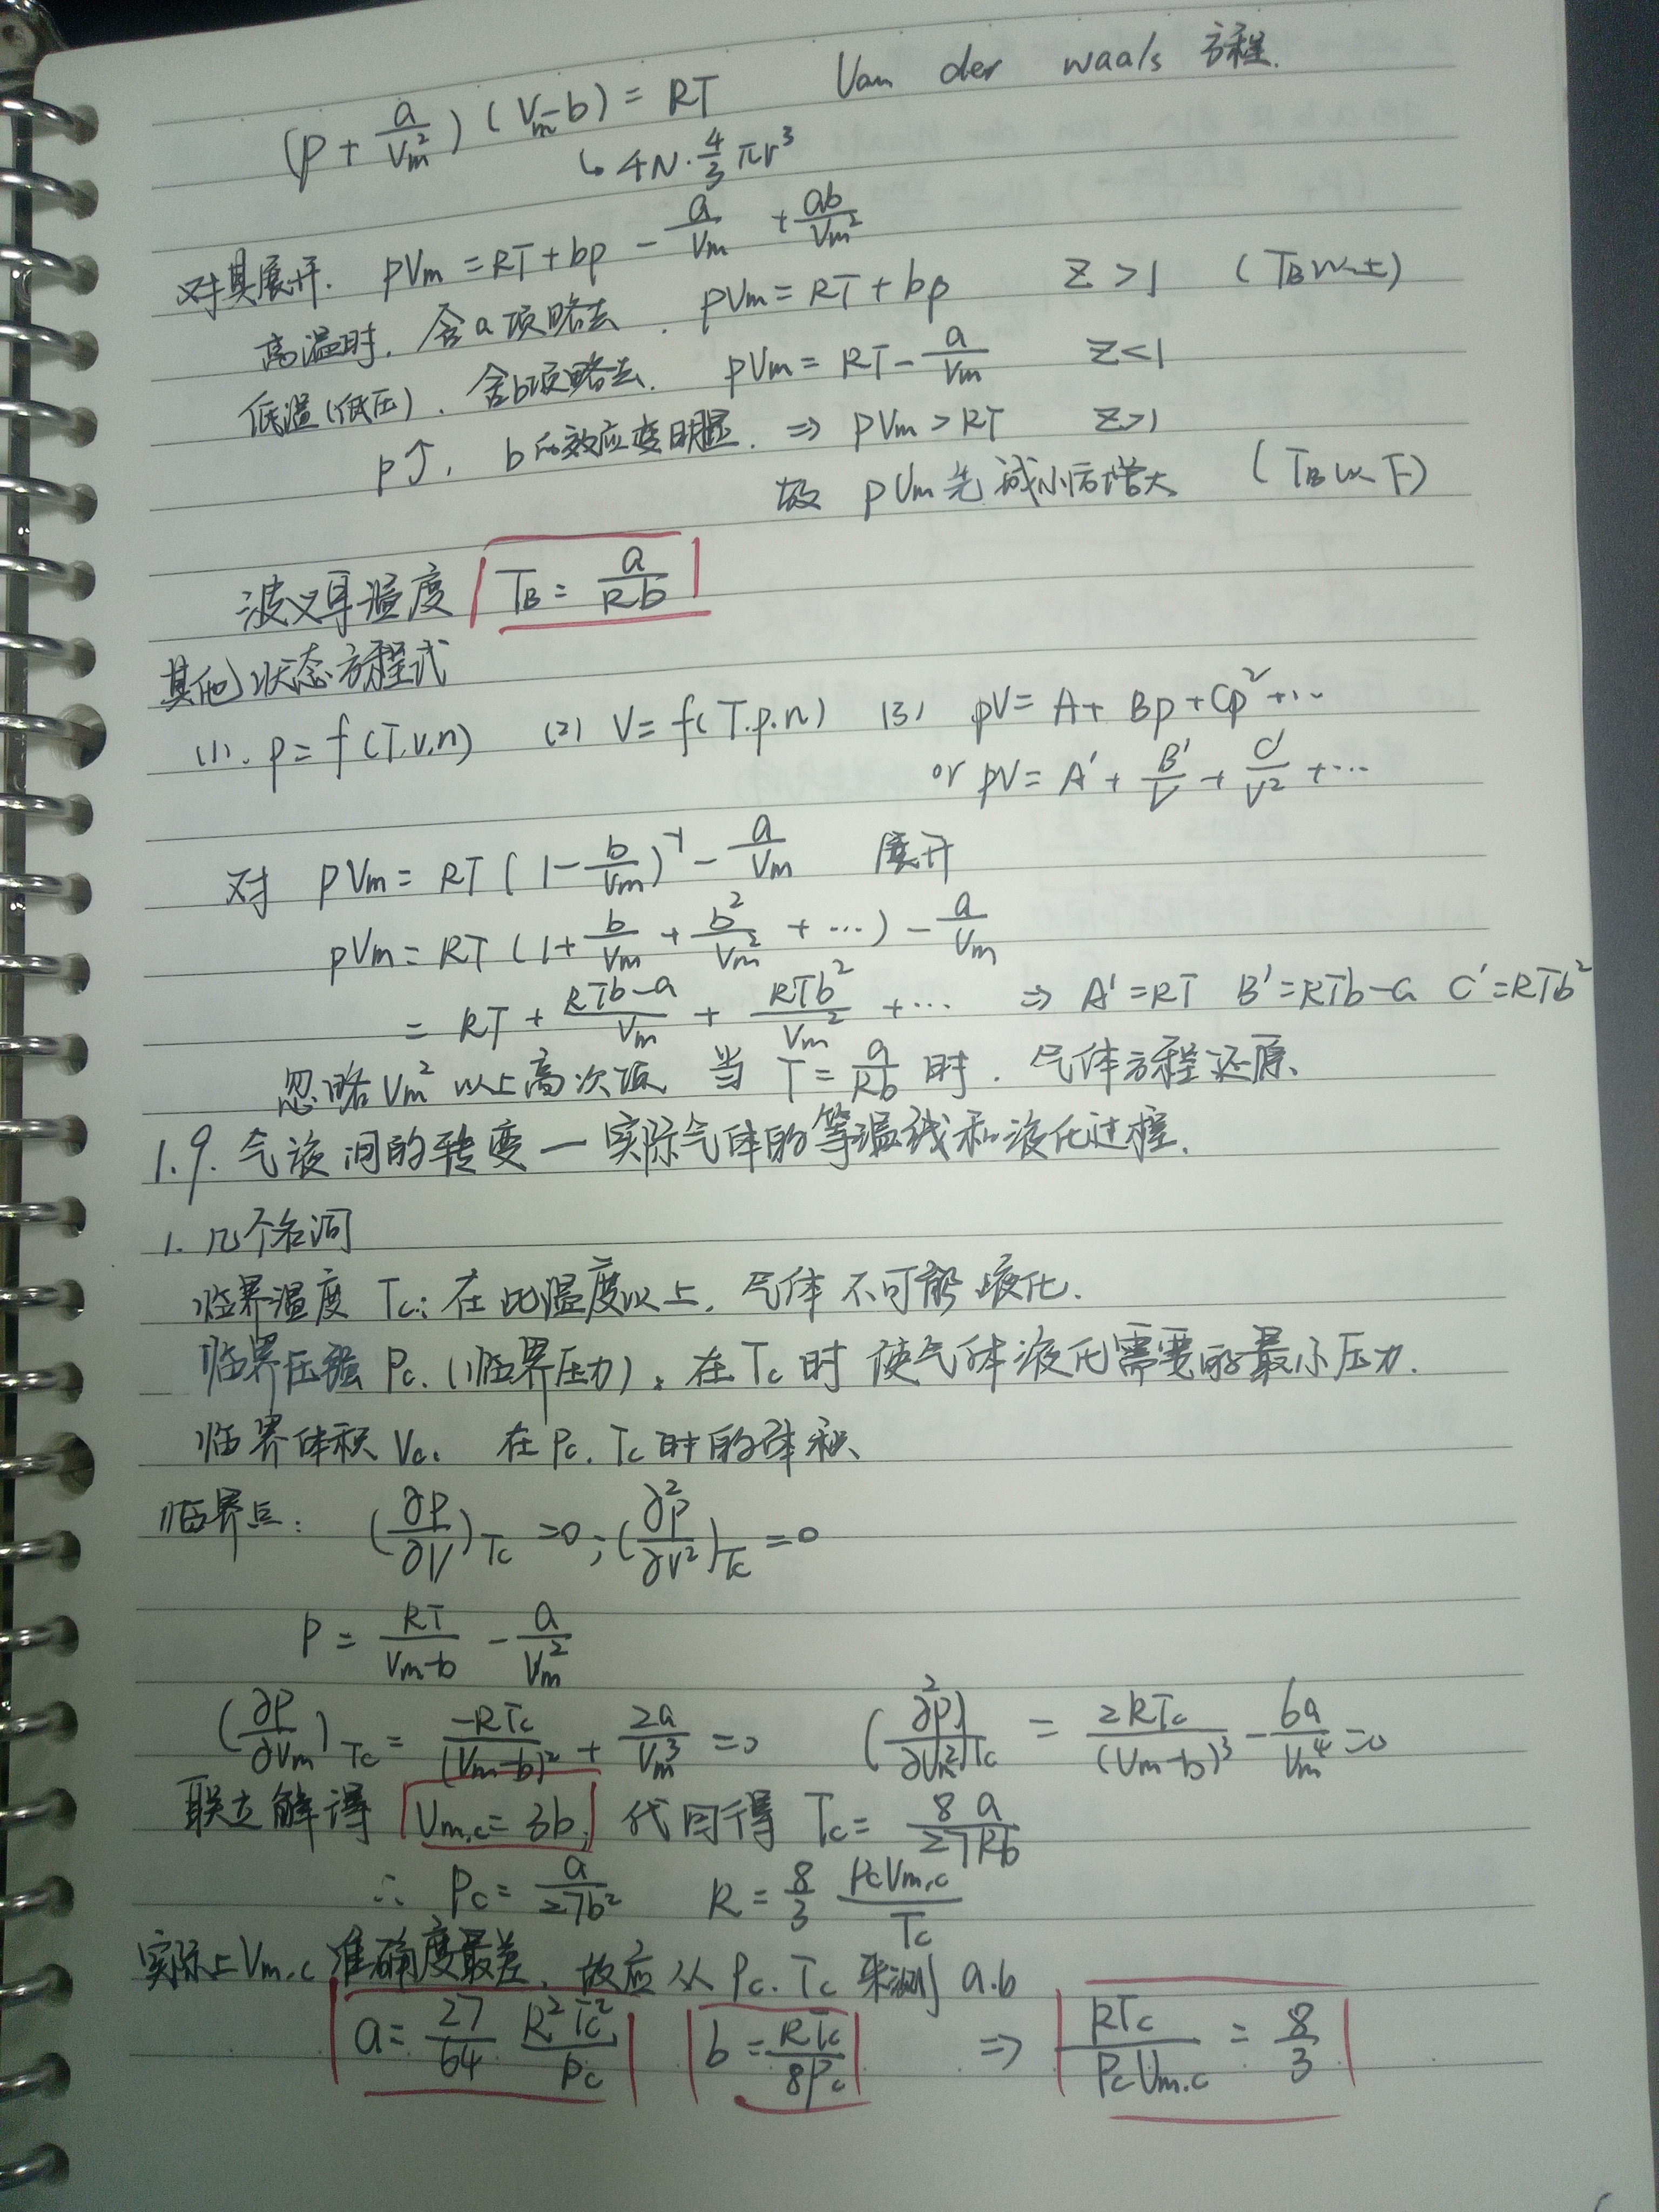 (p + a/Vm²)(Vm-b) = RT Van der waals 方程.
↳ 4N·4/3 πr³
对其展开. pVm = RT + bp - a/Vm + ab/Vm²
高温时, 含a项略去. pVm = RT + bp Z>1 (TB以上)
低温(低压), 含b项略去. pVm = RT - a/Vm Z<1
p↑, b的效应变明显. ⇒ pVm > RT Z>1
故 pVm先减小后增大 (TB以下)
波义耳温度 TB = a/Rb
其他状态方程式
(1). p = f(T.V.n) (2) V = f(T.p.n) (3) pV = A + Bp + Cp² + ...
or pV = A' + B'/V + C'/V² + ...
对 pVm = RT(1 - b/Vm)⁻¹ - a/Vm 展开
pVm = RT(1 + b/Vm + b²/Vm² + ...) - a/Vm
= RT + (RTb-a)/Vm + RTb²/Vm² + ... ⇒ A'=RT B'=RTb-a C'=RTb²
忽略Vm²以上高次项 当 T = a/Rb 时. 气体方程还原.
1.9. 气液间的转变 — 实际气体的等温线和液化过程.
1. 几个名词
临界温度 Tc: 在此温度以上, 气体不可能液化.
临界压强 Pc. (临界压力). 在Tc时 使气体液化需要的最小压力.
临界体积 Vc. 在Pc. Tc时的体积
临界点: (∂P/∂V)Tc = 0; (∂²P/∂V²)Tc = 0
P = RT/(Vm-b) - a/Vm²
(∂P/∂Vm)Tc = -RTc/(Vm-b)² + 2a/Vm³ = 0 (∂²P/∂Vm²)Tc = 2RTc/(Vm-b)³ - 6a/Vm⁴ = 0
联立解得 Vm,c = 3b, 代回得 Tc = 8a/27Rb
∴ Pc = a/27b² R = 8/3 PcVm,c/Tc
实际上Vm,c准确度最差, 故应从Pc. Tc来测 a.b
a = 27/64 R²Tc²/Pc b = RTc/8Pc ⇒ RTc/PcVm,c = 8/3